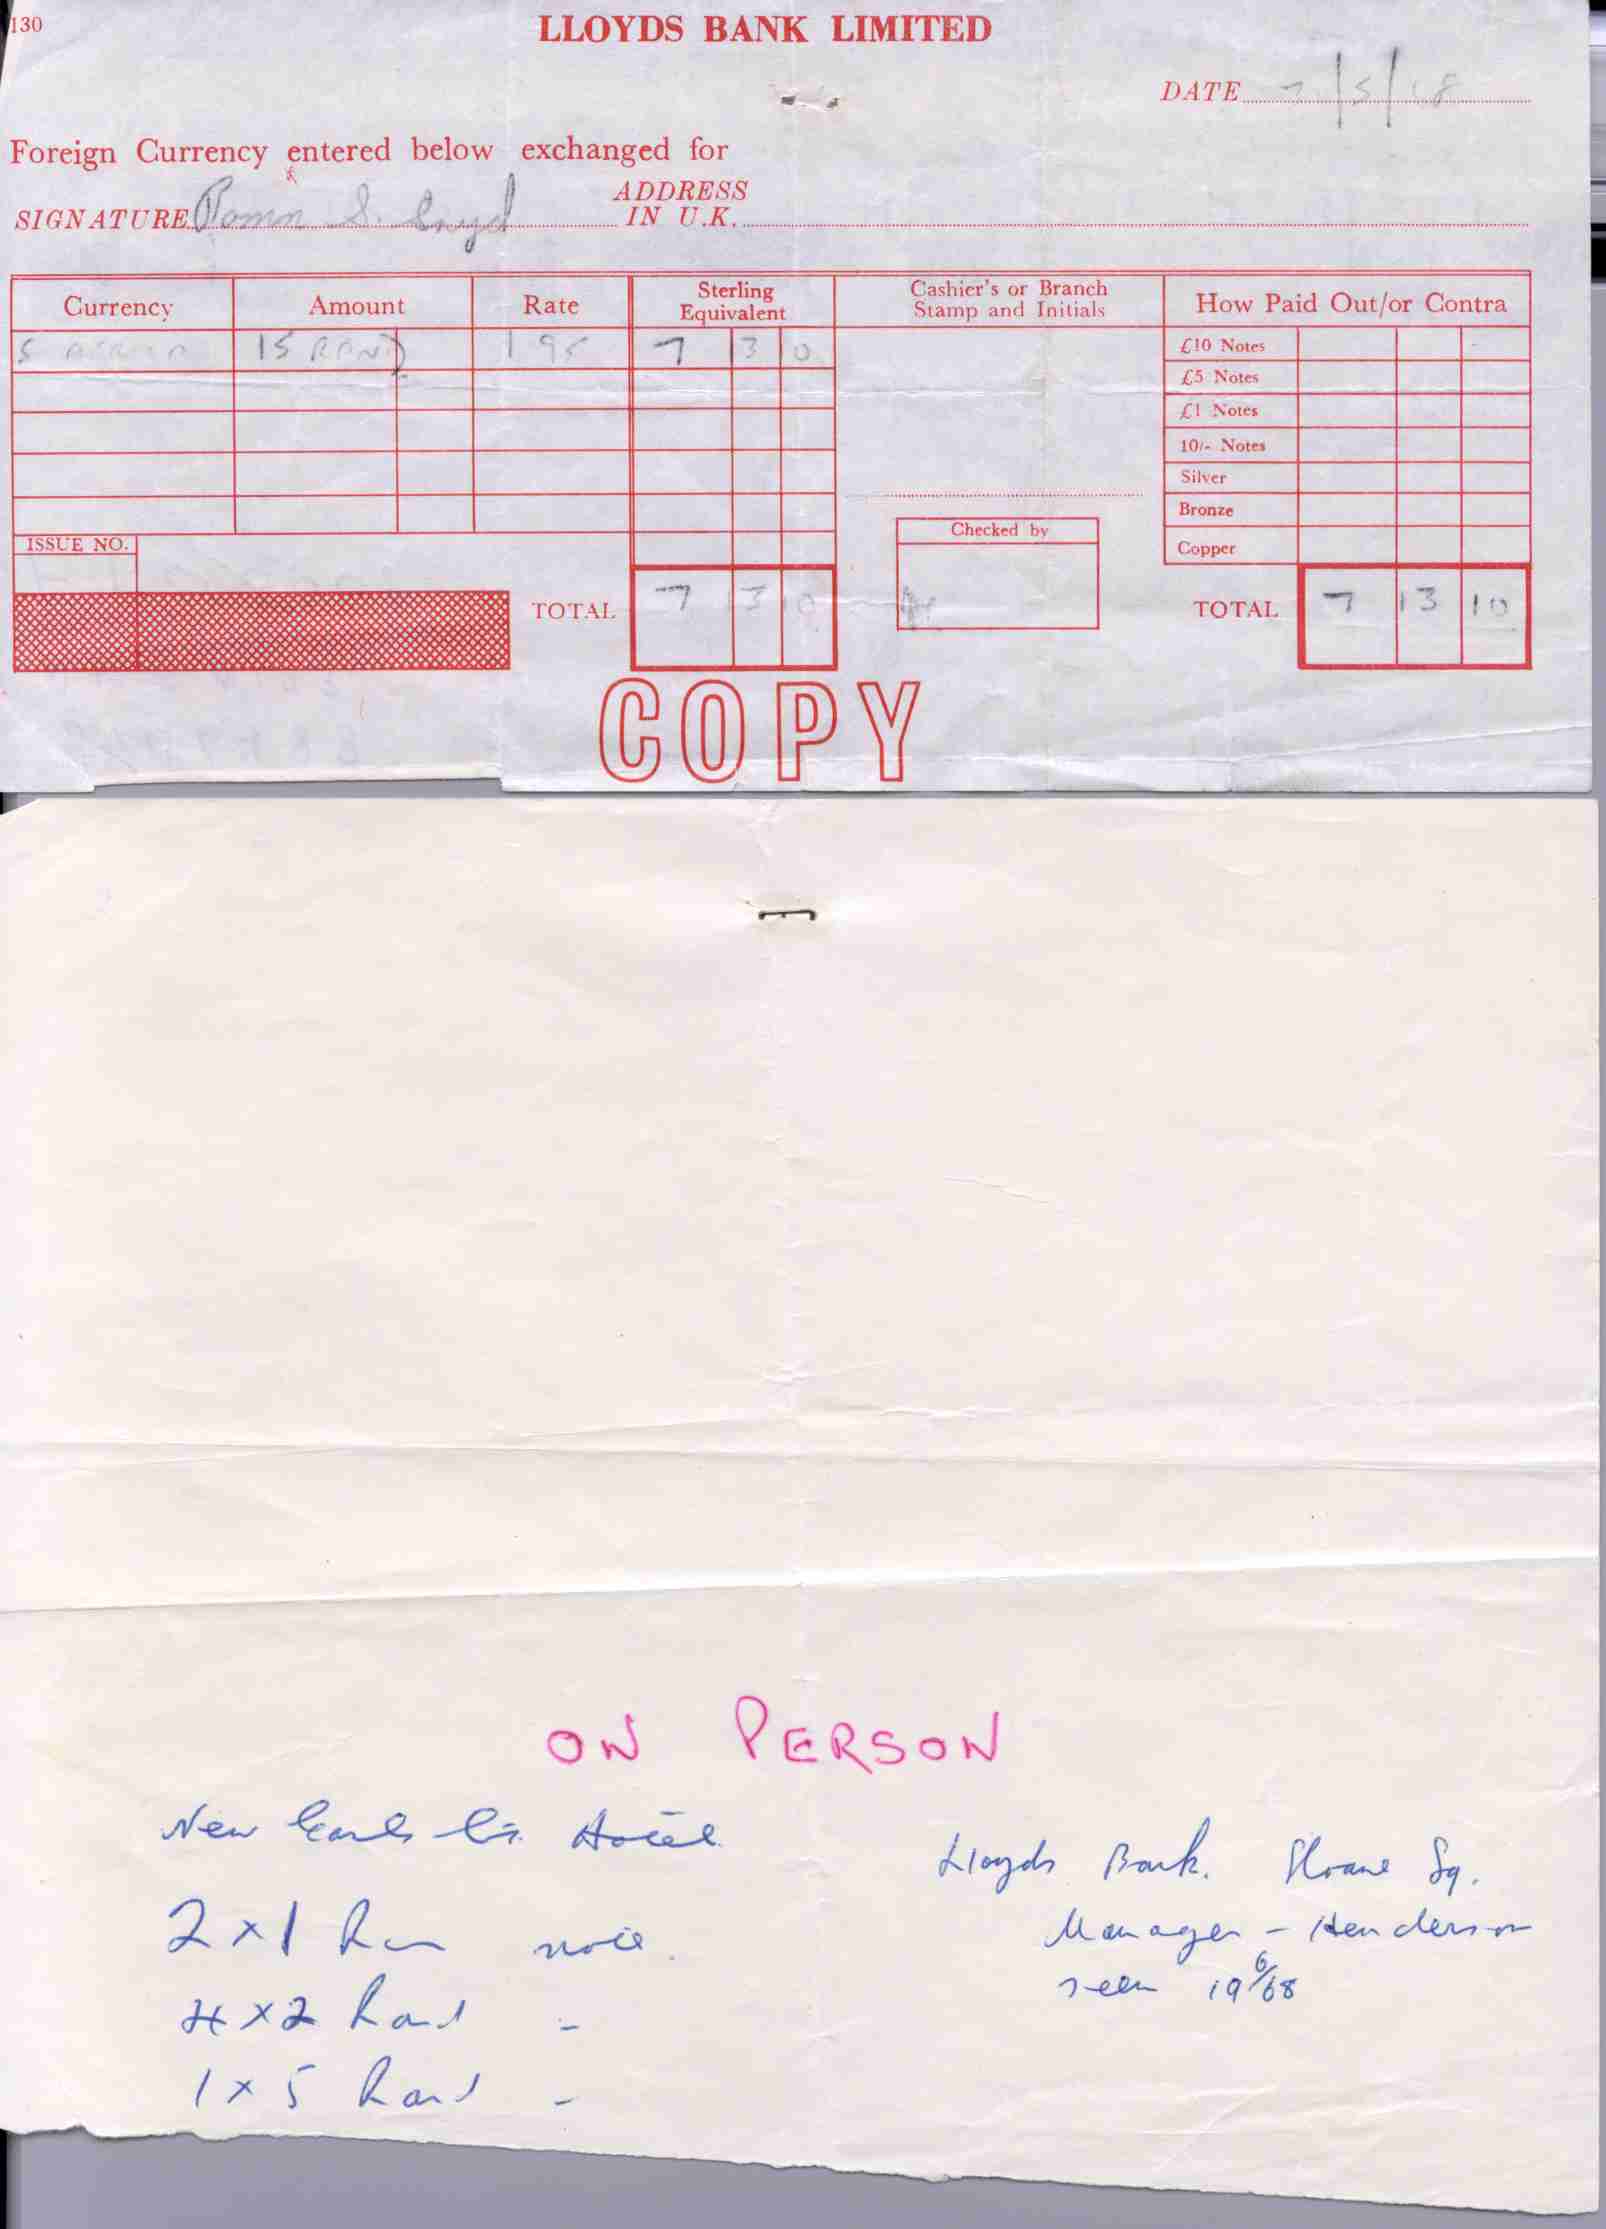 130
LLOYDS BANK LIMITED
DATE 7/5/68
Foreign Currency entered below exchanged for
SIGNATURE
ADDRESS
IN U.K.
Currency Amount Rate Sterling Equivalent Cashier's or Branch Stamp and Initials How Paid Out/or Contra
S AFRICA 15 RAND 195 7 13 10
£10 Notes
£5 Notes
£1 Notes
10/- Notes
Silver
Bronze
Copper
ISSUE NO.
Checked by
TOTAL 7 13 10
TOTAL 7 13 10
COPY
ON PERSON
New Earls Hotel
2 x 1 note.
4 x 2 Rand -
1 x 5 Rand -
Lloyds Bank. Sloane Sq.
Manager - Henderson
seen 19/6/68